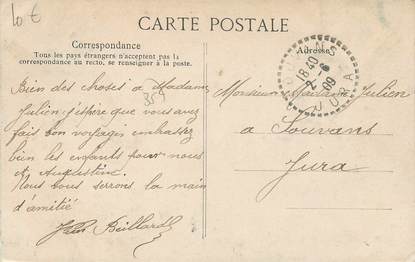 10 €
CARTE POSTALE
Correspondance
Tous les pays étrangers n'acceptent pas la
correspondance au recto, se renseigner à la poste.
Adresse
18 40
2 - 6
09
JURA
Bien des choses à Madame
359
Julien j'espère que vous avez
fait bon voyage embrassez
bien les enfants pour nous
et Augustine
Nous vous serrons la main
d'amitié
Beillard
Monsieur Julien
a Souvans
Jura